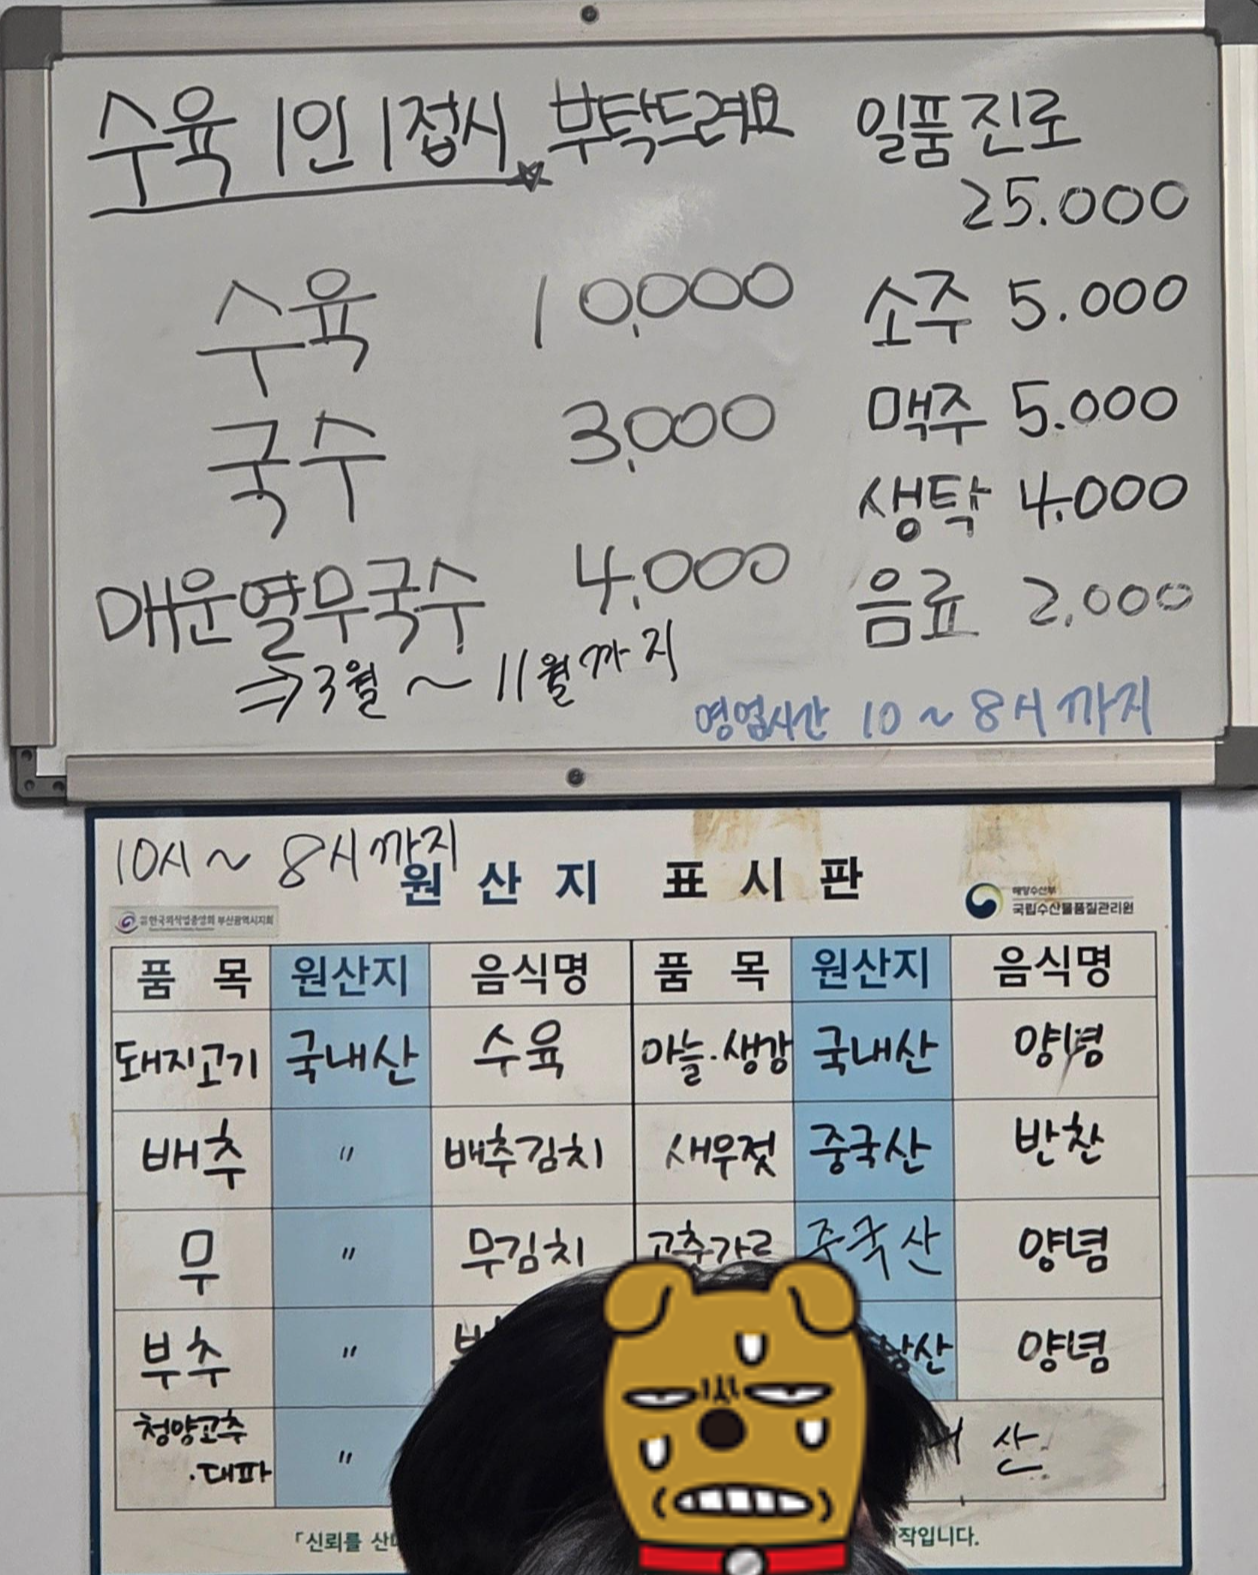 수육 1인 1접시 부탁드려요
수육 10,000
국수 3,000
매운열무국수 4,000
⇒ 3월 ~ 11월까지
일품진로
25.000
소주 5.000
맥주 5.000
생탁 4.000
음료 2.000
영업시간 10 ~ 8시까지
10시 ~ 8시까지
원산지 표시판
한국외식업중앙회 부산광역시지회
해양수산부
국립수산물품질관리원
품목 원산지 음식명 품목 원산지 음식명
돼지고기 국내산 수육 마늘.생강 국내산 양념
배추 〃 배추김치 새우젓 중국산 반찬
무 〃 무김치 고추가루 중국산 양념
부추 〃 양념
청양고추
.대파 〃 산
「신뢰를 작입니다.